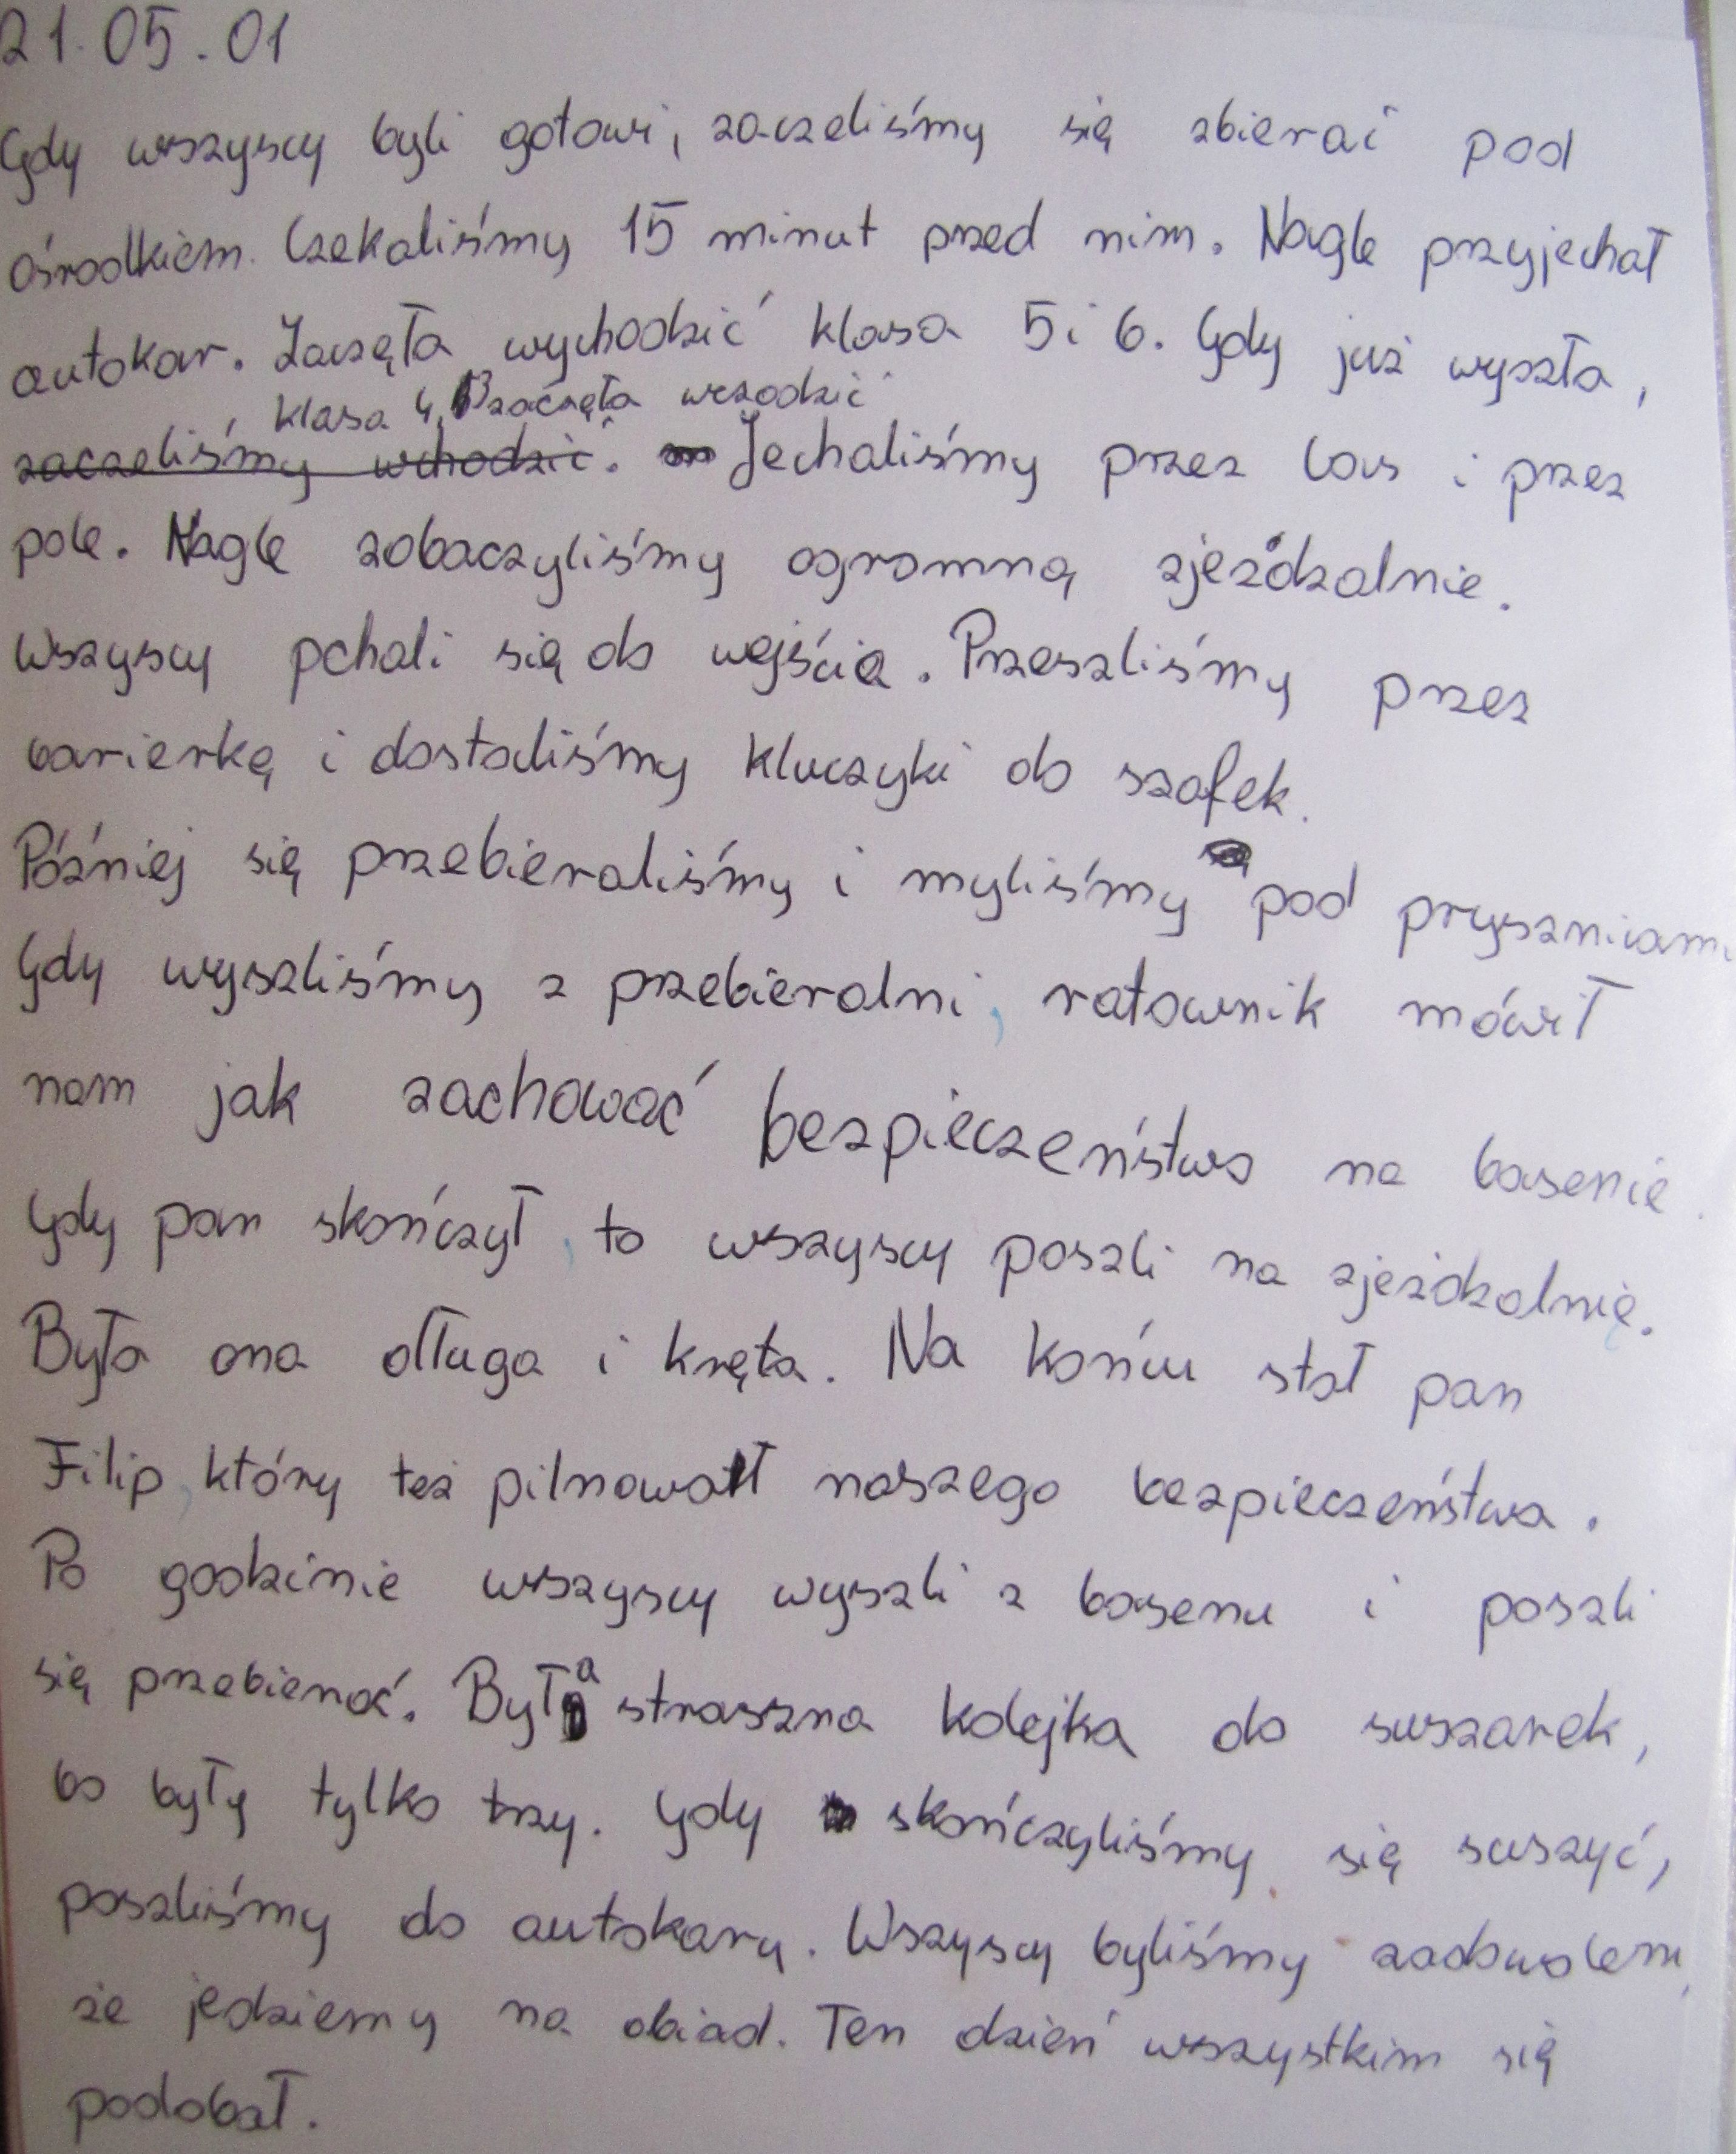 21.05.01
Gdy wszyscy byli gotowi, zaczeliśmy się zbierać pod
ośrodkiem. Czekaliśmy 15 minut przed nim. Nagle przyjechał
autokar. Zaczęła wychodzić klasa 5 i 6. Gdy już wyszła,
klasa 4, 3 zaczęła wchodzić
zaczeliśmy wchodzić. Jechaliśmy przez las i przez
pole. Nagle zobaczyliśmy ogromną zjeżdżalnie.
Wszyscy pchali się do wejścia. Przeszliśmy przez
barierkę i dostaliśmy kluczyki do szafek.
Później się przebieraliśmy i myliśmy pod prysznicami
Gdy wyszliśmy z przebieralni, ratownik mówił
nam jak zachować bezpieczeństwo na basenie.
Gdy pan skończył, to wszyscy poszli na zjeżdżalnię.
Była ona długa i kręta. Na końcu stał pan
Filip, który też pilnował naszego bezpieczeństwa.
Po godzinie wszyscy wyszli z basenu i poszli
się przebierać. Była straszna kolejka do suszarek,
bo były tylko trzy. Gdy skończyliśmy się suszyć,
poszliśmy do autokaru. Wszyscy byliśmy zadowoleni,
że jedziemy na obiad. Ten dzień wszystkim się
podobał.